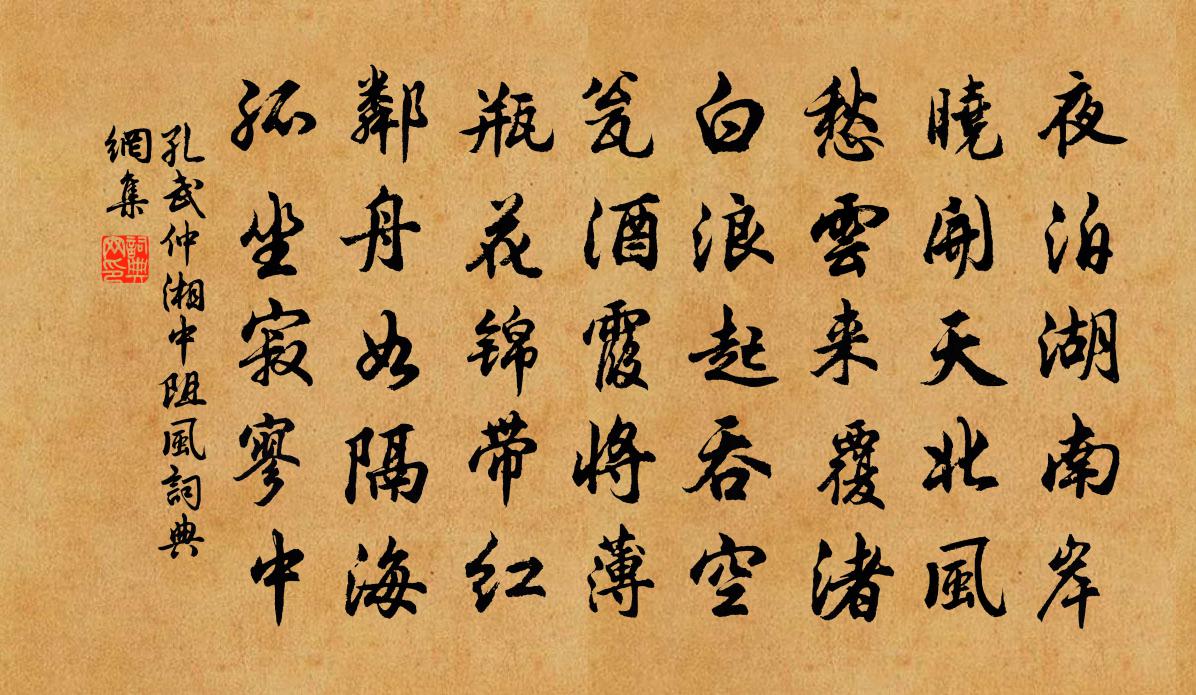 夜泊湖南岸
曉開天北風
愁雲来覆渚
白浪起吞空
瓮酒霞將薄
瓶花锦带红
鄰舟如隔海
孤坐寂寥中
孔武仲湘中阻風詞典
網集
詞典網印